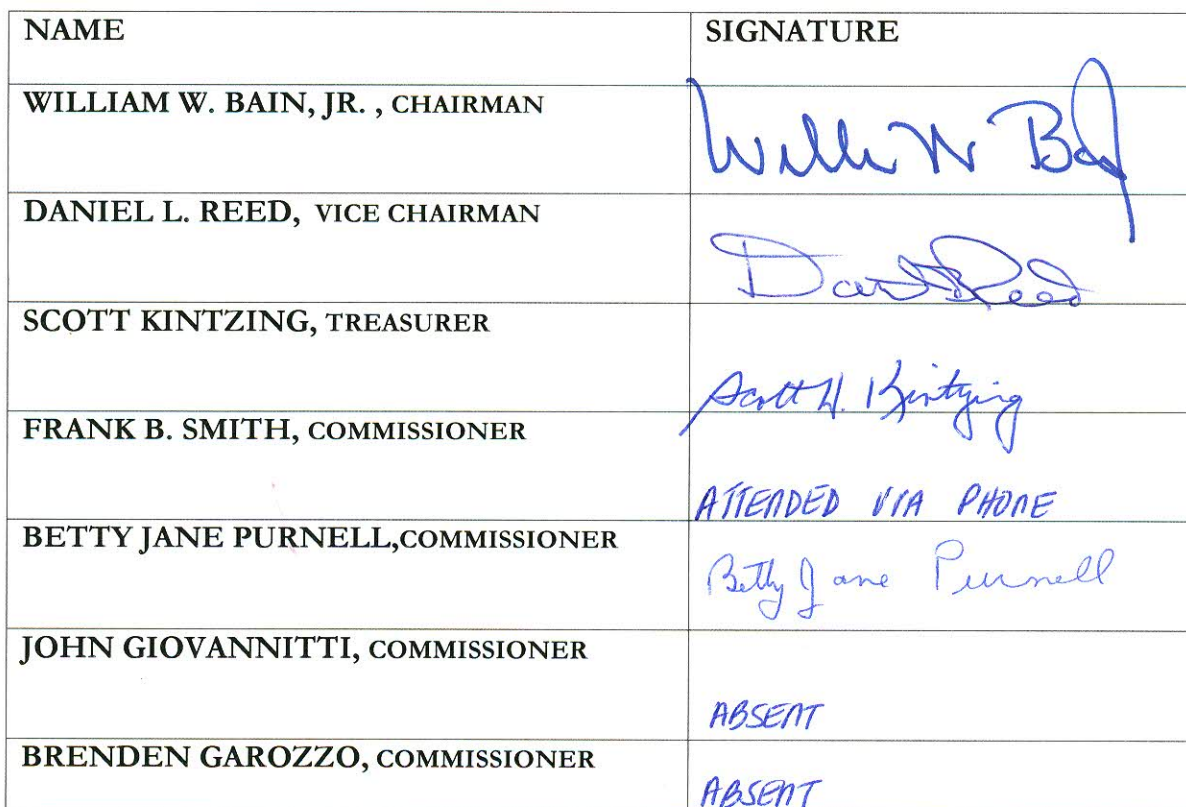 NAME SIGNATURE
WILLIAM W. BAIN, JR. , CHAIRMAN
Willi W Ba
DANIEL L. REED, VICE CHAIRMAN
Daniel Reed
SCOTT KINTZING, TREASURER
Scott H. Kintzing
FRANK B. SMITH, COMMISSIONER
ATTENDED VIA PHONE
BETTY JANE PURNELL,COMMISSIONER
Betty Jane Purnell
JOHN GIOVANNITTI, COMMISSIONER
ABSENT
BRENDEN GAROZZO, COMMISSIONER
ABSENT